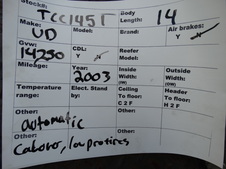 Stock#: TCC1451 Body Length: 14
Make: UD Model: Brand: Air brakes: Y N
Gvw: 14250 CDL: Y N Reefer Model:
Mileage: Year: 2003 Inside Width: (IW) Outside Width: (OW)
Temperature range: Elect. Stand by: Ceiling To floor: C 2 F Header To Floor: H 2 F
Other: automatic
Other: Cabover, low pro tires